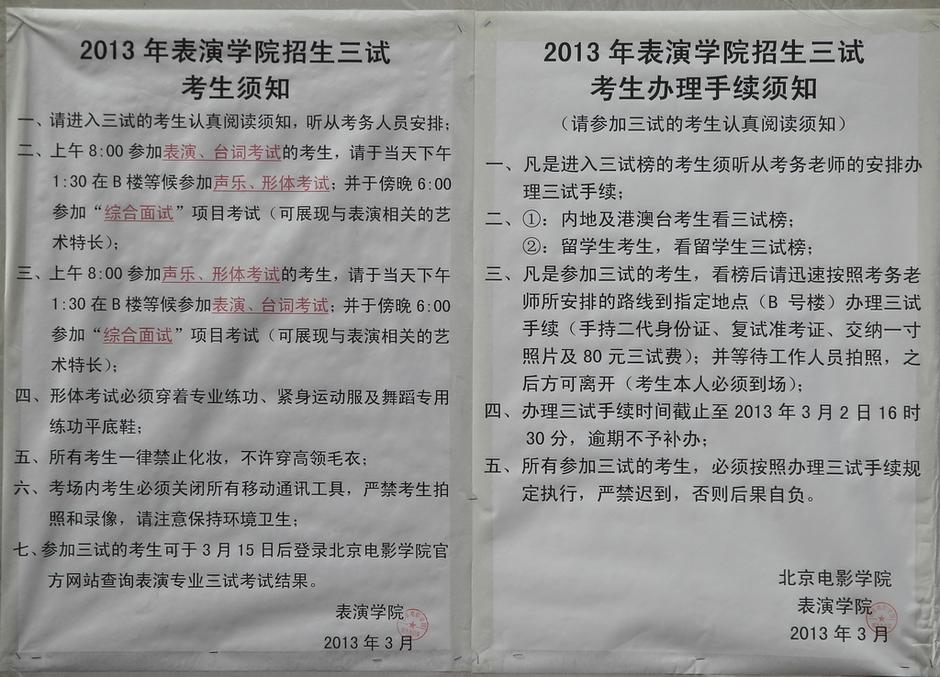 2013 年表演学院招生三试
考生须知
一、请进入三试的考生认真阅读须知，听从考务人员安排；
二、上午 8:00 参加表演、台词考试的考生，请于当天下午
1:30 在 B 楼等候参加声乐、形体考试；并于傍晚 6:00
参加“综合面试”项目考试（可展现与表演相关的艺
术特长）；
三、上午 8:00 参加声乐、形体考试的考生，请于当天下午
1:30 在 B 楼等候参加表演、台词考试；并于傍晚 6:00
参加“综合面试”项目考试（可展现与表演相关的艺
术特长）；
四、形体考试必须穿着专业练功、紧身运动服及舞蹈专用
练功平底鞋；
五、所有考生一律禁止化妆，不许穿高领毛衣；
六、考场内考生必须关闭所有移动通讯工具，严禁考生拍
照和录像，请注意保持环境卫生；
七、参加三试的考生可于 3 月 15 日后登录北京电影学院官
方网站查询表演专业三试考试结果。
表演学院
2013 年 3 月
2013 年表演学院招生三试
考生办理手续须知
（请参加三试的考生认真阅读须知）
一、凡是进入三试榜的考生须听从考务老师的安排办
理三试手续；
二、①：内地及港澳台考生看三试榜；
②：留学生考生，看留学生三试榜；
三、凡是参加三试的考生，看榜后请迅速按照考务老
师所安排的路线到指定地点（B 号楼）办理三试
手续（手持二代身份证、复试准考证、交纳一寸
照片及 80 元三试费）；并等待工作人员拍照，之
后方可离开（考生本人必须到场）；
四、办理三试手续时间截止至 2013 年 3 月 2 日 16 时
30 分，逾期不予补办；
五、所有参加三试的考生，必须按照办理三试手续规
定执行，严禁迟到，否则后果自负。
北京电影学院
表演学院
2013 年 3 月